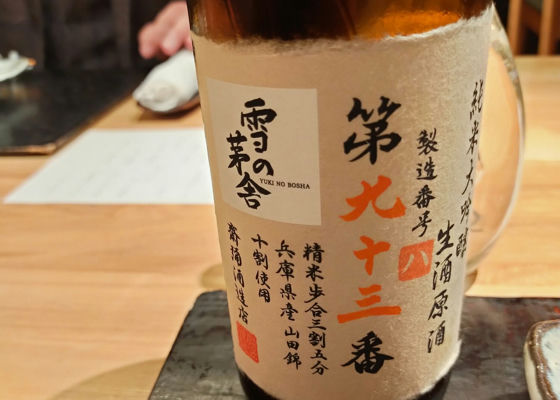 純米大吟醸
生酒原酒
製造番号
八
第九十三番
雪の茅舎
YUKI NO BOSHA
精米歩合三割五分
兵庫県産山田錦
十割使用
齋彌酒造店